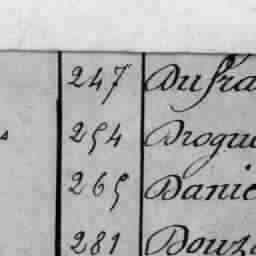 247 Dufra
254 Drogue
265 Danie
281 Douz